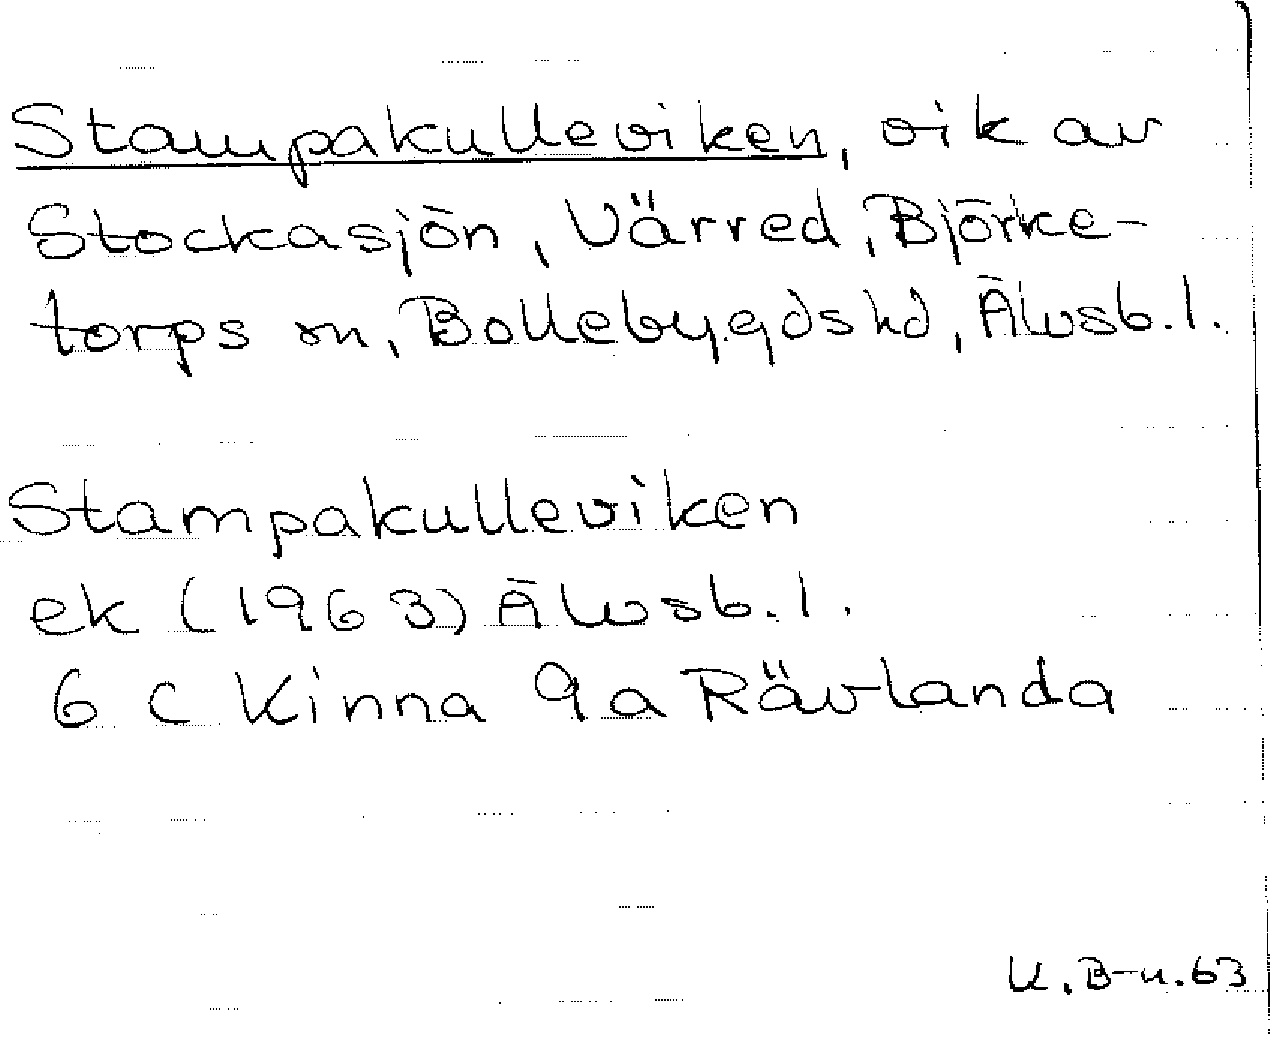 Stampakulleviken, vik av
Stockasjön, Värred, Björke-
torps sn, Bollebygds hd, Älvsb. l.
Stampakulleviken
ek (1963) Älvsb. l.
6 C Kinna 9a Rävlanda
U. B-n. 63